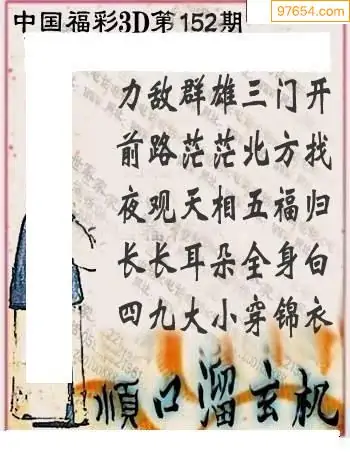 97654.com
中国福彩3D第152期
力敌群雄三门开
前路茫茫北方找
夜观天相五福归
长长耳朵全身白
四九大小穿锦衣
顺口溜玄机